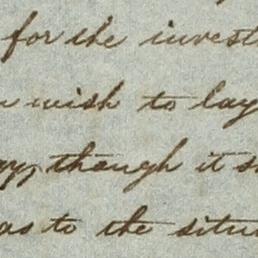 for the invest
wish to lay
though it s
as to the situ